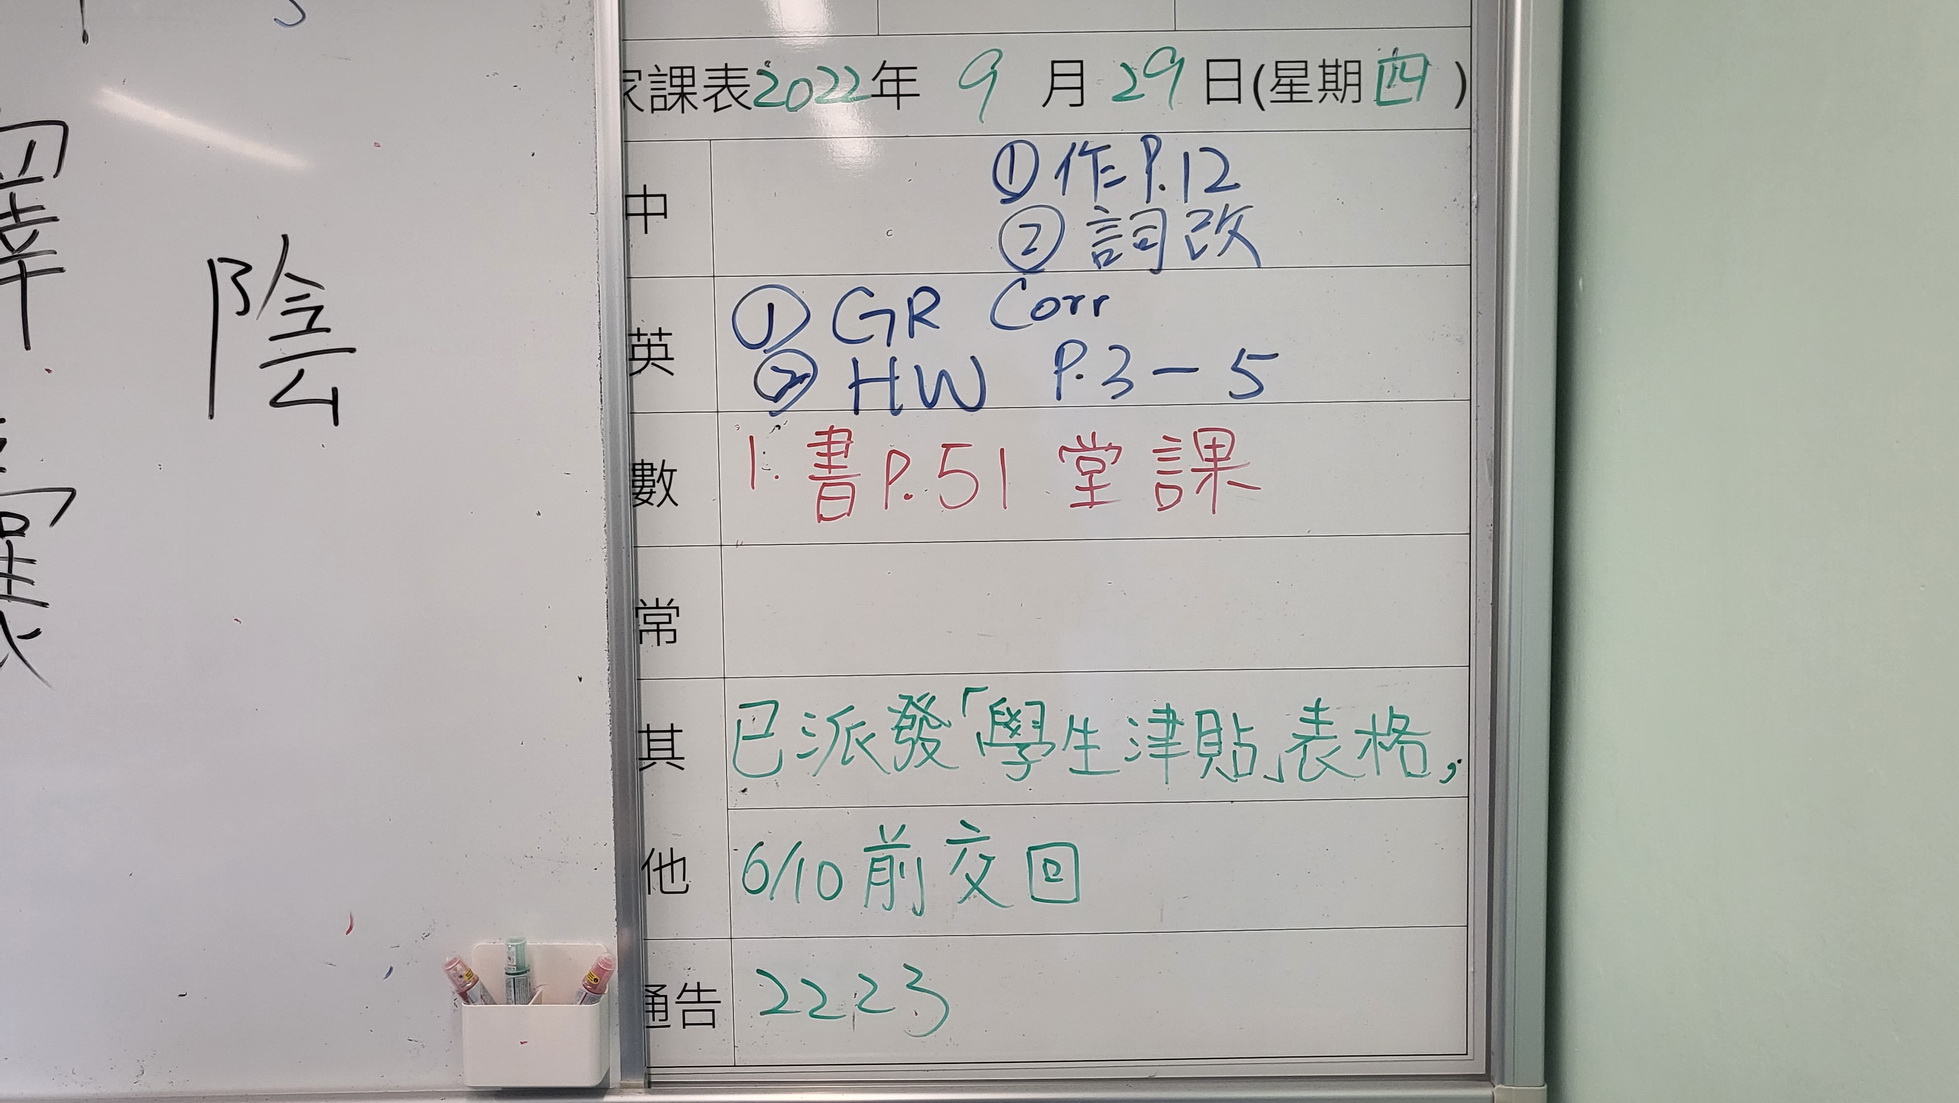 陰
家課表2022年 9 月 29 日(星期四)
中 ①作P.12
②詞改
英 ① GR Corr
② HW P.3-5
數 1. 書P.51 堂課
常
其 已派發「學生津貼」表格,
他 6/10前交回
通告 2223